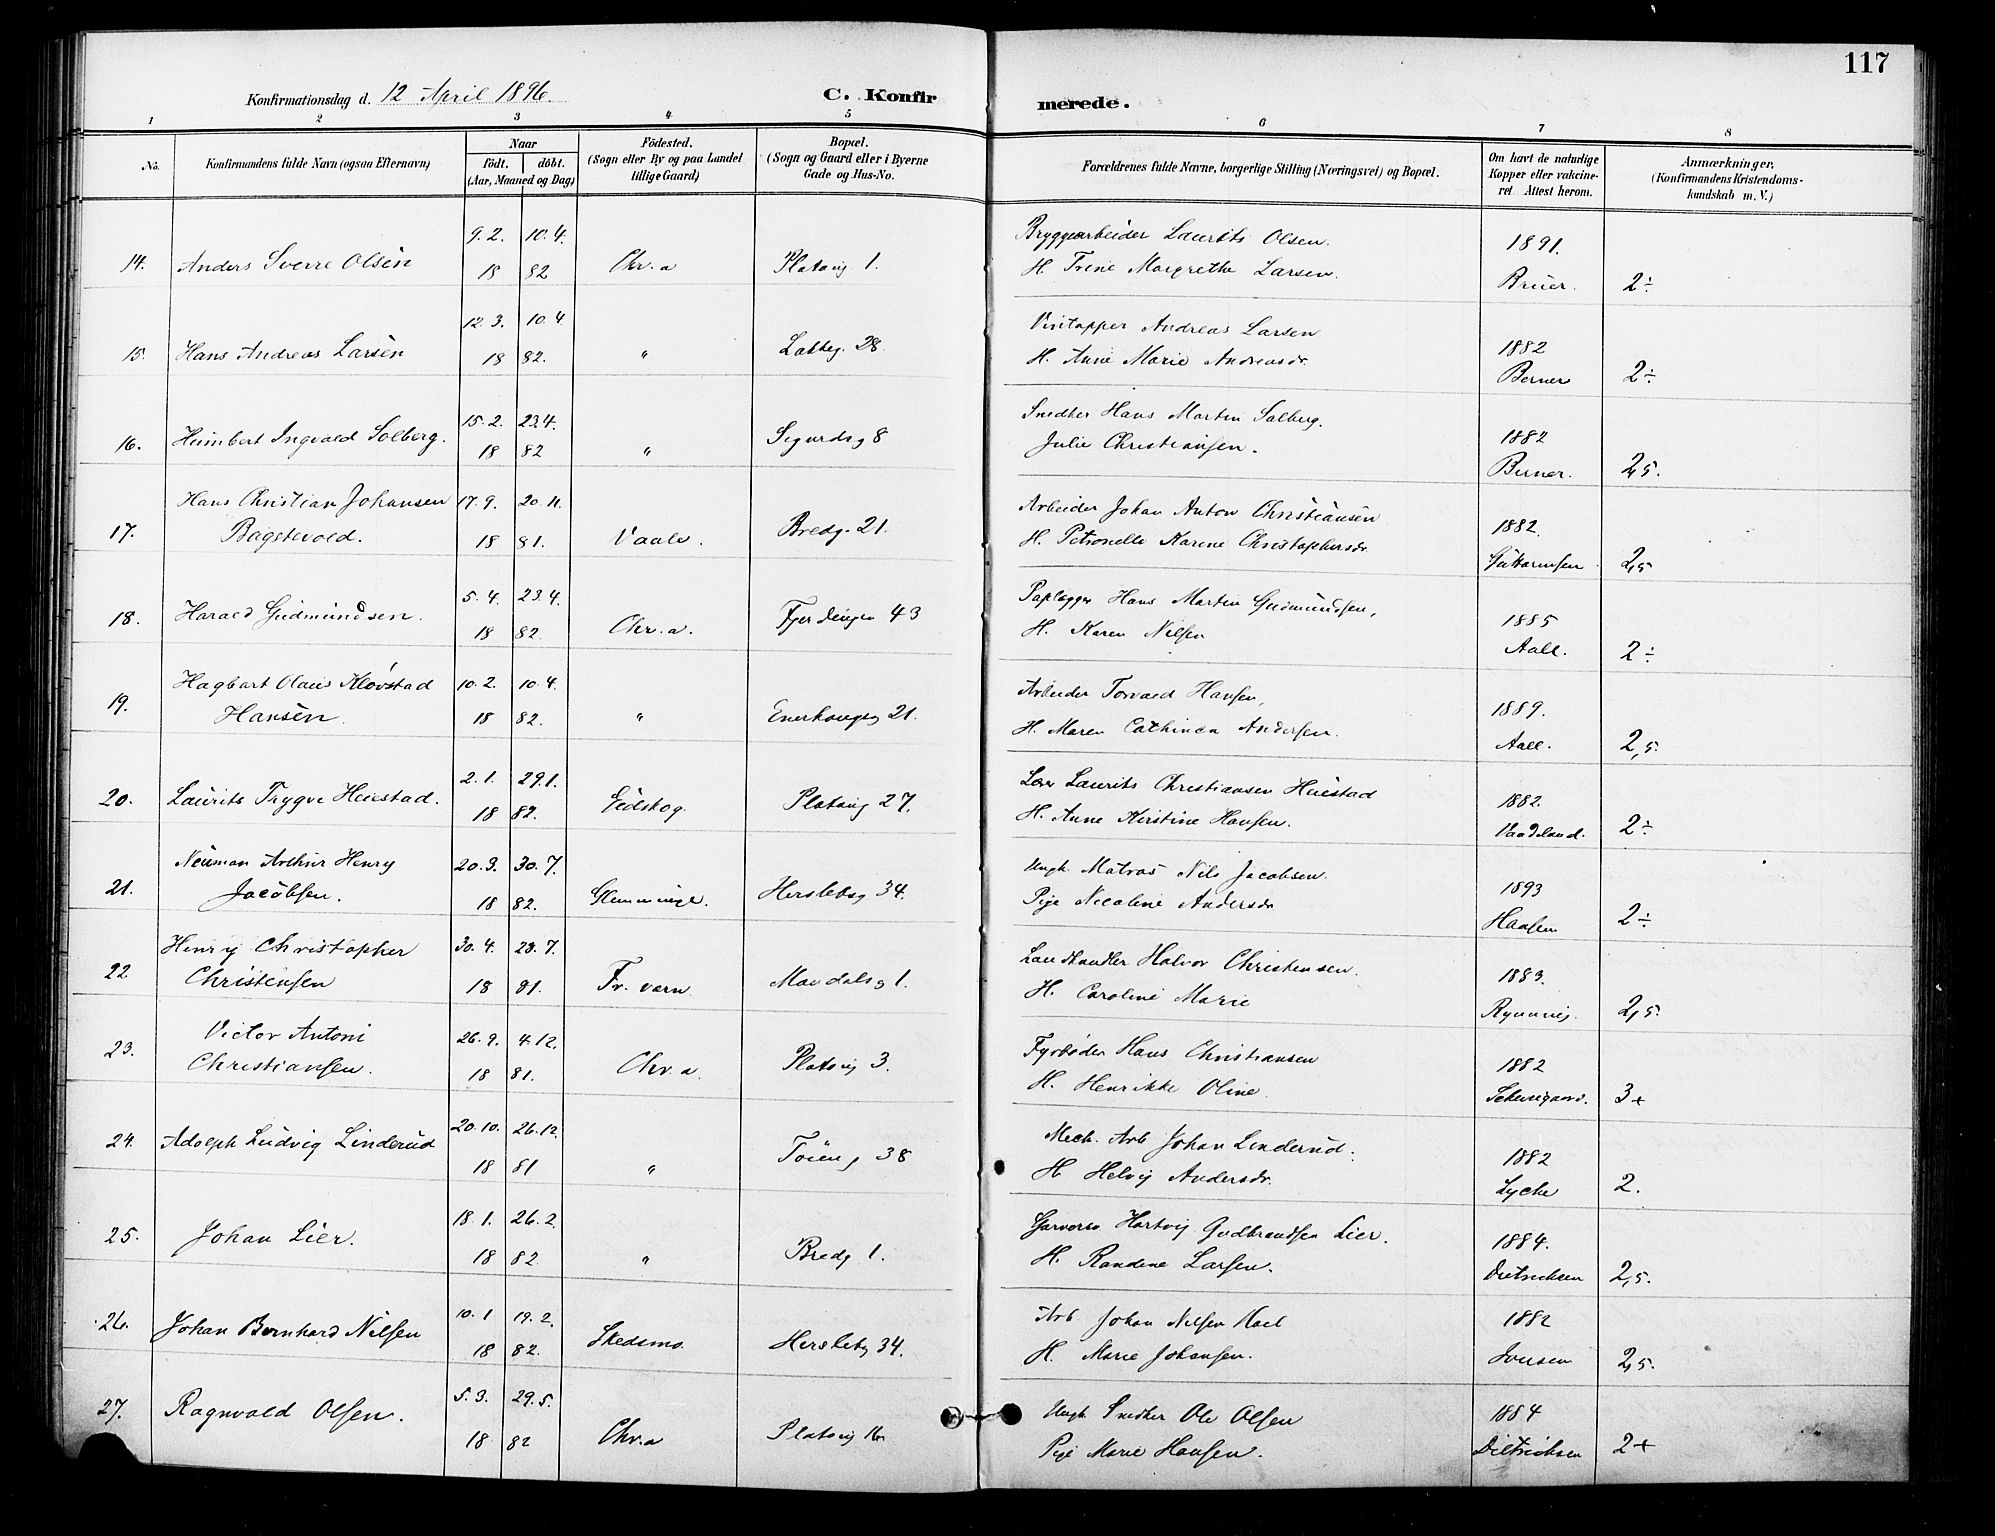 117
Konfirmationsdag d. 12 April 1896.
C. Konfirmerede.
1 2 3 4 5 6 7 8
No. Konfirmandens fulde Navn (ogsaa Efternavn) Naar født. døbt. (Aar, Maaned og Dag) Fødested. (Sogn eller By og paa Landet tillige Gaard) Bopæl. (Sogn og Gaard eller i Byerne Gade og Hus-No. Forældrenes fulde Navne, borgerlige Stilling (Næringsvei) og Bopæl. Om havt de naturlige Kopper eller vakcineret Attest herom. Anmærkninger. (Konfirmandens Kristendomskundskab m. V.)
9.2. 10.4. Bryggearbeider Laurits Olsen. 1891.
14. Anders Sverre Olsen 18 82 Chr.a Platoug 1. H. Trine Margrethe Larsen. Bruer. 2÷
12.3. 10.4. Andreas Larsen 1882
15. Hans Andreas Larsen 18 82. " Lakkeg. 28. H. Anne Marie Andreasdr. Berner 2÷
15.2. 23.4. Snedker Hans Martin Solberg. 1882
16. Humbert Ingvald Solberg. 18 82 " Sigurdsg 8 Julie Christiansen. Berner. 2,5.
Hans Christian Johansen 17.9. 20.11. Arbeider Johan Anton Christiansen 1882.
17. Bagstevold. 18 81. Vaale. Bredg. 21. H. Petronelle Karine Christophersdr. Guttormsen 2,5
5.4. 23.4. Paplægger Hans Martin Gudmundsen, 1885
18. Harald Gudmundsen. 18 82. Chr.a. Fjerdingen 43 H. Karen Nilsen Aall. 2÷
Hagbart Olaus Kløvstad 10.2. 10.4. Arbeider Torvald Hansen, 1889.
19. Hansen. 18 82. " Enerhougsg 21. H. Maren Cathinca Andersen. Aall. 2,5.
2.1. 29.1. Lærer Laurits Christiansen Heiestad 1882.
20. Laurits Trygve Heiestad. 18 82. Eidskog. Platoug 27. H. Anne Kirstine Hansen. Vaadeland. 2÷
Neuman Arthur Henry 20.3. 30.7. Ungk. Matros Nils Jacobsen. 1893
21. Jacobsen. 18 82. Glemminge. Herslebsg 34. Pige Nicoline Andersdr Hansen 2÷
Henry Christopher 30.4. 28.7. Landhandler Halvor Christensen. 1883.
22. Christensen 18 81. Fr. værn Mandalsg 1. H. Caroline Marie Rynning. 2,5.
Victor Antoni 26.9. 4.12. Fyrbøder Hans Christiansen 1882
23. Christiansen. 18 81. Chr.a. Platoug 3. H. Henrikke Oline. Schweigaard. 3+
20.10. 26.12. Mech. Arb Johan Linderud. 1882
24. Adolph Ludvig Linderud 18 81 " Tøieng 38 H. Helvig Andersdr. Lyche 2.
18.1. 26.2. Garversv. Hartvig Gudbrandsen Lier. 1884.
25. Johan Lier. 18 82. " Bredg 1. H. Randine Larsen. Dietrichsen 2,5.
10.1 19.2. Arb. Johan Nilsen 1882
26. Johan Bernhard Nilsen 18 82. Skedsmo. Herslebg 34. H. Marie Johansen. Iversen 2,5.
5.3. 29.5. Ungk. Snedker Ole Olsen 1884
27. Ragnvald Olsen. 18 82 Chr.a Platoug 16 Pige Marie Hansen. Dietrichsen 2+